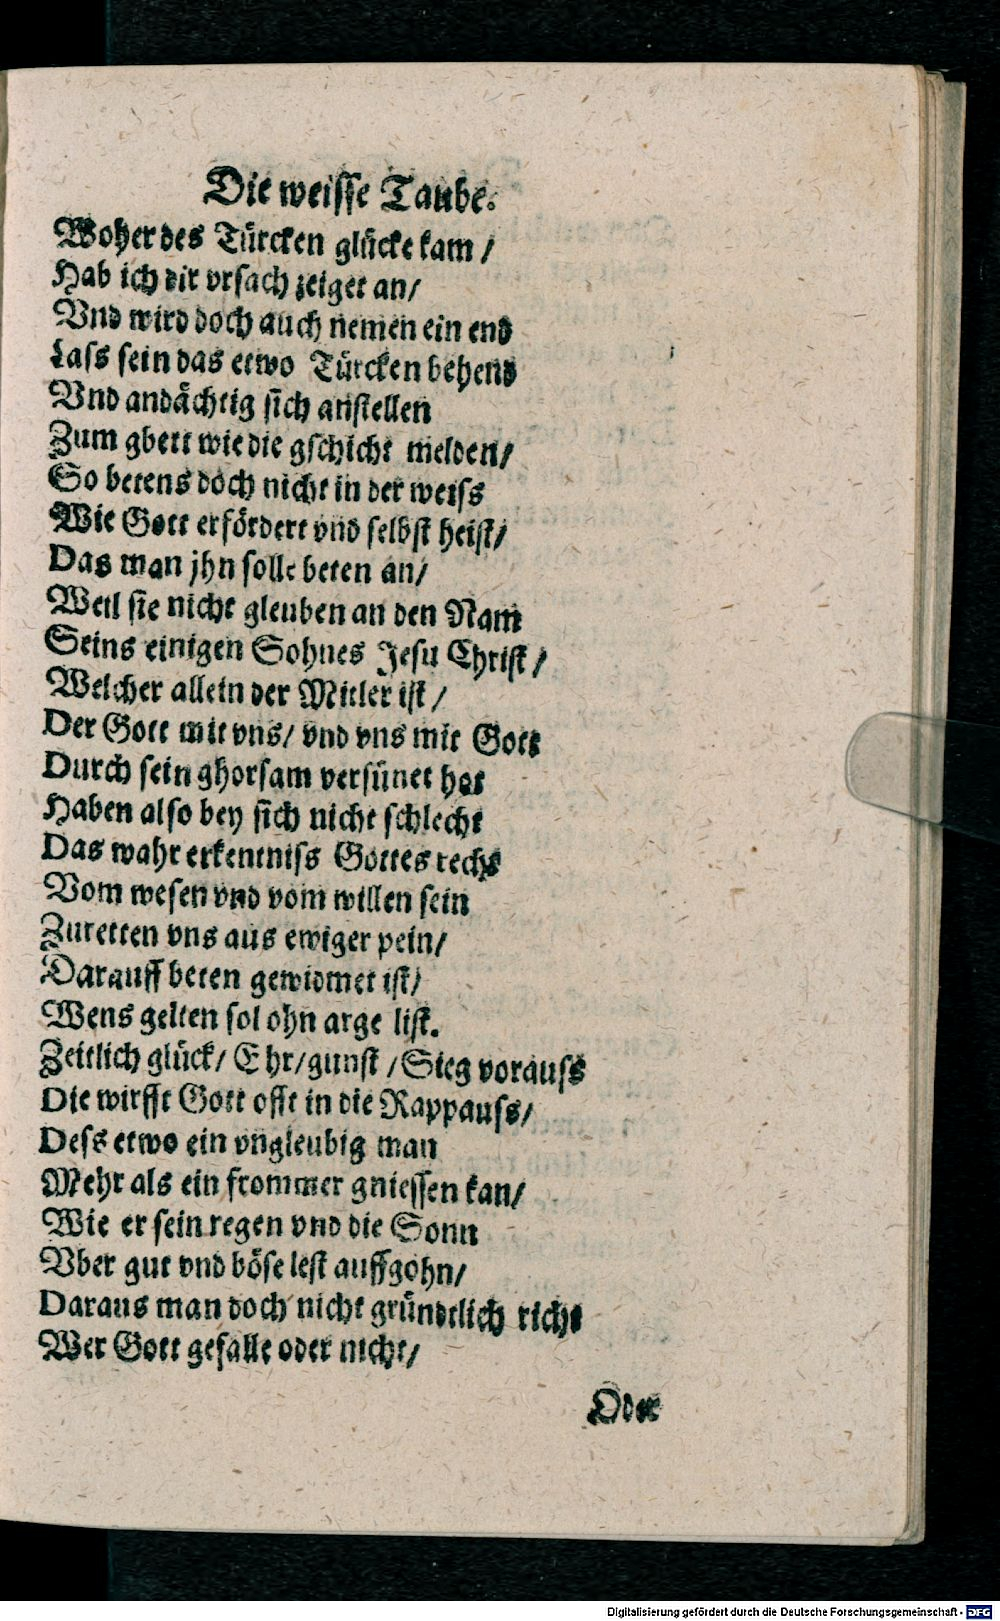 Die weisse Taube.
Woher des Türcken glücke kam /
Hab ich dir vrsach zeiget an/
Vnd wird doch auch nemen ein end
Lass sein das etwo Türcken behend
Vnd andächtig sich anstellen
Zum gbett wie die gschicht melden/
So betens doch nicht in der weiss
Wie Gott erfördert vnd selbst heist/
Das man jhn solle beten an/
Weil sie nicht gleuben an den Nam
Seins einigen Sohnes Jesu Christ /
Welcher allein der Mitler ist /
Der Gott mit vns/ vnd vns mit Gott
Durch sein ghorsam versünet hat
Haben also bey sich nicht schlecht
Das wahr erkentniss Gottes recht
Vom wesen vnd vom willen sein
Zuretten vns aus ewiger pein/
Darauff beten gewidmet ist/
Wens gelten sol ohn arge list.
Zeitlich glück/ Ehr/ gunst / Sieg vorauss
Die wirfft Gott offt in die Rappauss/
Dess etwo ein vngleubig man
Mehr als ein frommer gniessen kan/
Wie er sein regen vnd die Sonn
Vber gut vnd böse lest auffgohn/
Daraus man doch nicht gründtlich richt
Wer Gott gefalle oder nicht/
Oder
Digitalisierung gefördert durch die Deutsche Forschungsgemeinschaft - DFG